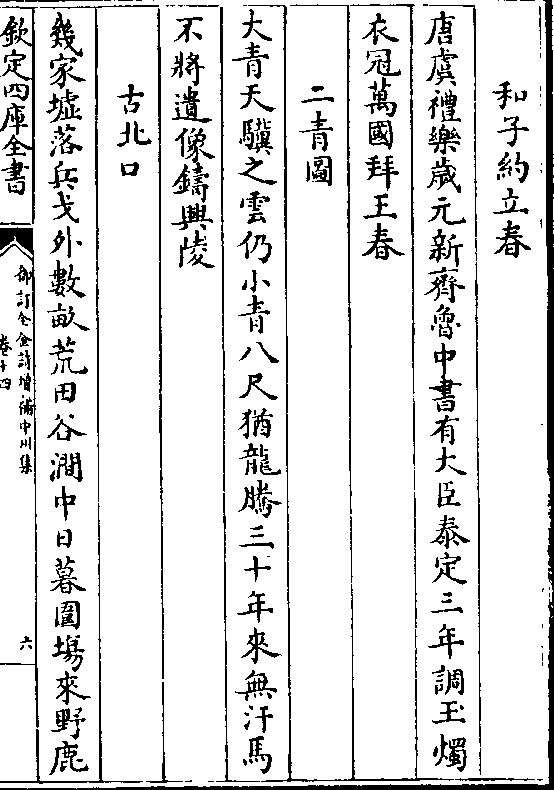 和子約立春
唐虞禮樂歲元新齊魯中書有大臣泰定三年調玉燭
衣冠萬國拜王春
二青圖
大青天驥之雲仍小青八尺猶龍騰三十年來無汗馬
不將遺像鑄興陵
古北口
幾家墟落兵戈外數畝荒田谷澗中日暮圍場來野鹿
欽定四庫全書
御訂全金詩增補中州集
卷十四
六